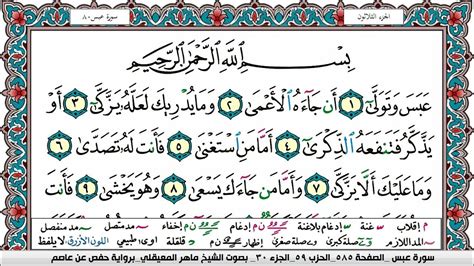 الجزء الثلاثون سورة عبس ٨٠
بِسْمِ ٱللَّهِ ٱلرَّحْمَٰنِ ٱلرَّحِيمِ
عَبَسَ وَتَوَلَّىٰٓ ١ أَن جَآءَهُ ٱلْأَعْمَىٰ ٢ وَمَا يُدْرِيكَ لَعَلَّهُۥ يَزَّكَّىٰٓ ٣ أَوْ
يَذَّكَّرُ فَتَنفَعَهُ ٱلذِّكْرَىٰٓ ٤ أَمَّا مَنِ ٱسْتَغْنَىٰ ٥ فَأَنتَ لَهُۥ تَصَدَّىٰ ٦
وَمَا عَلَيْكَ أَلَّا يَزَّكَّىٰ ٧ وَأَمَّا مَن جَآءَكَ يَسْعَىٰ ٨ وَهُوَ يَخْشَىٰ ٩ فَأَنتَ
إقلاب غنة إدغام بلاغنة إدغام إخفاء مد متصل مد منفصل
المد اللازم صلة كبرى قلقلة طبيعي اللون الأزرق لا يلفظ
سورة عبس _ الصفحة ٥٨٥_ الحزب ٥٩_ الجزء ٣٠_ بصوت الشيخ ماهر المعيقلي_ برواية حفص عن عاصم